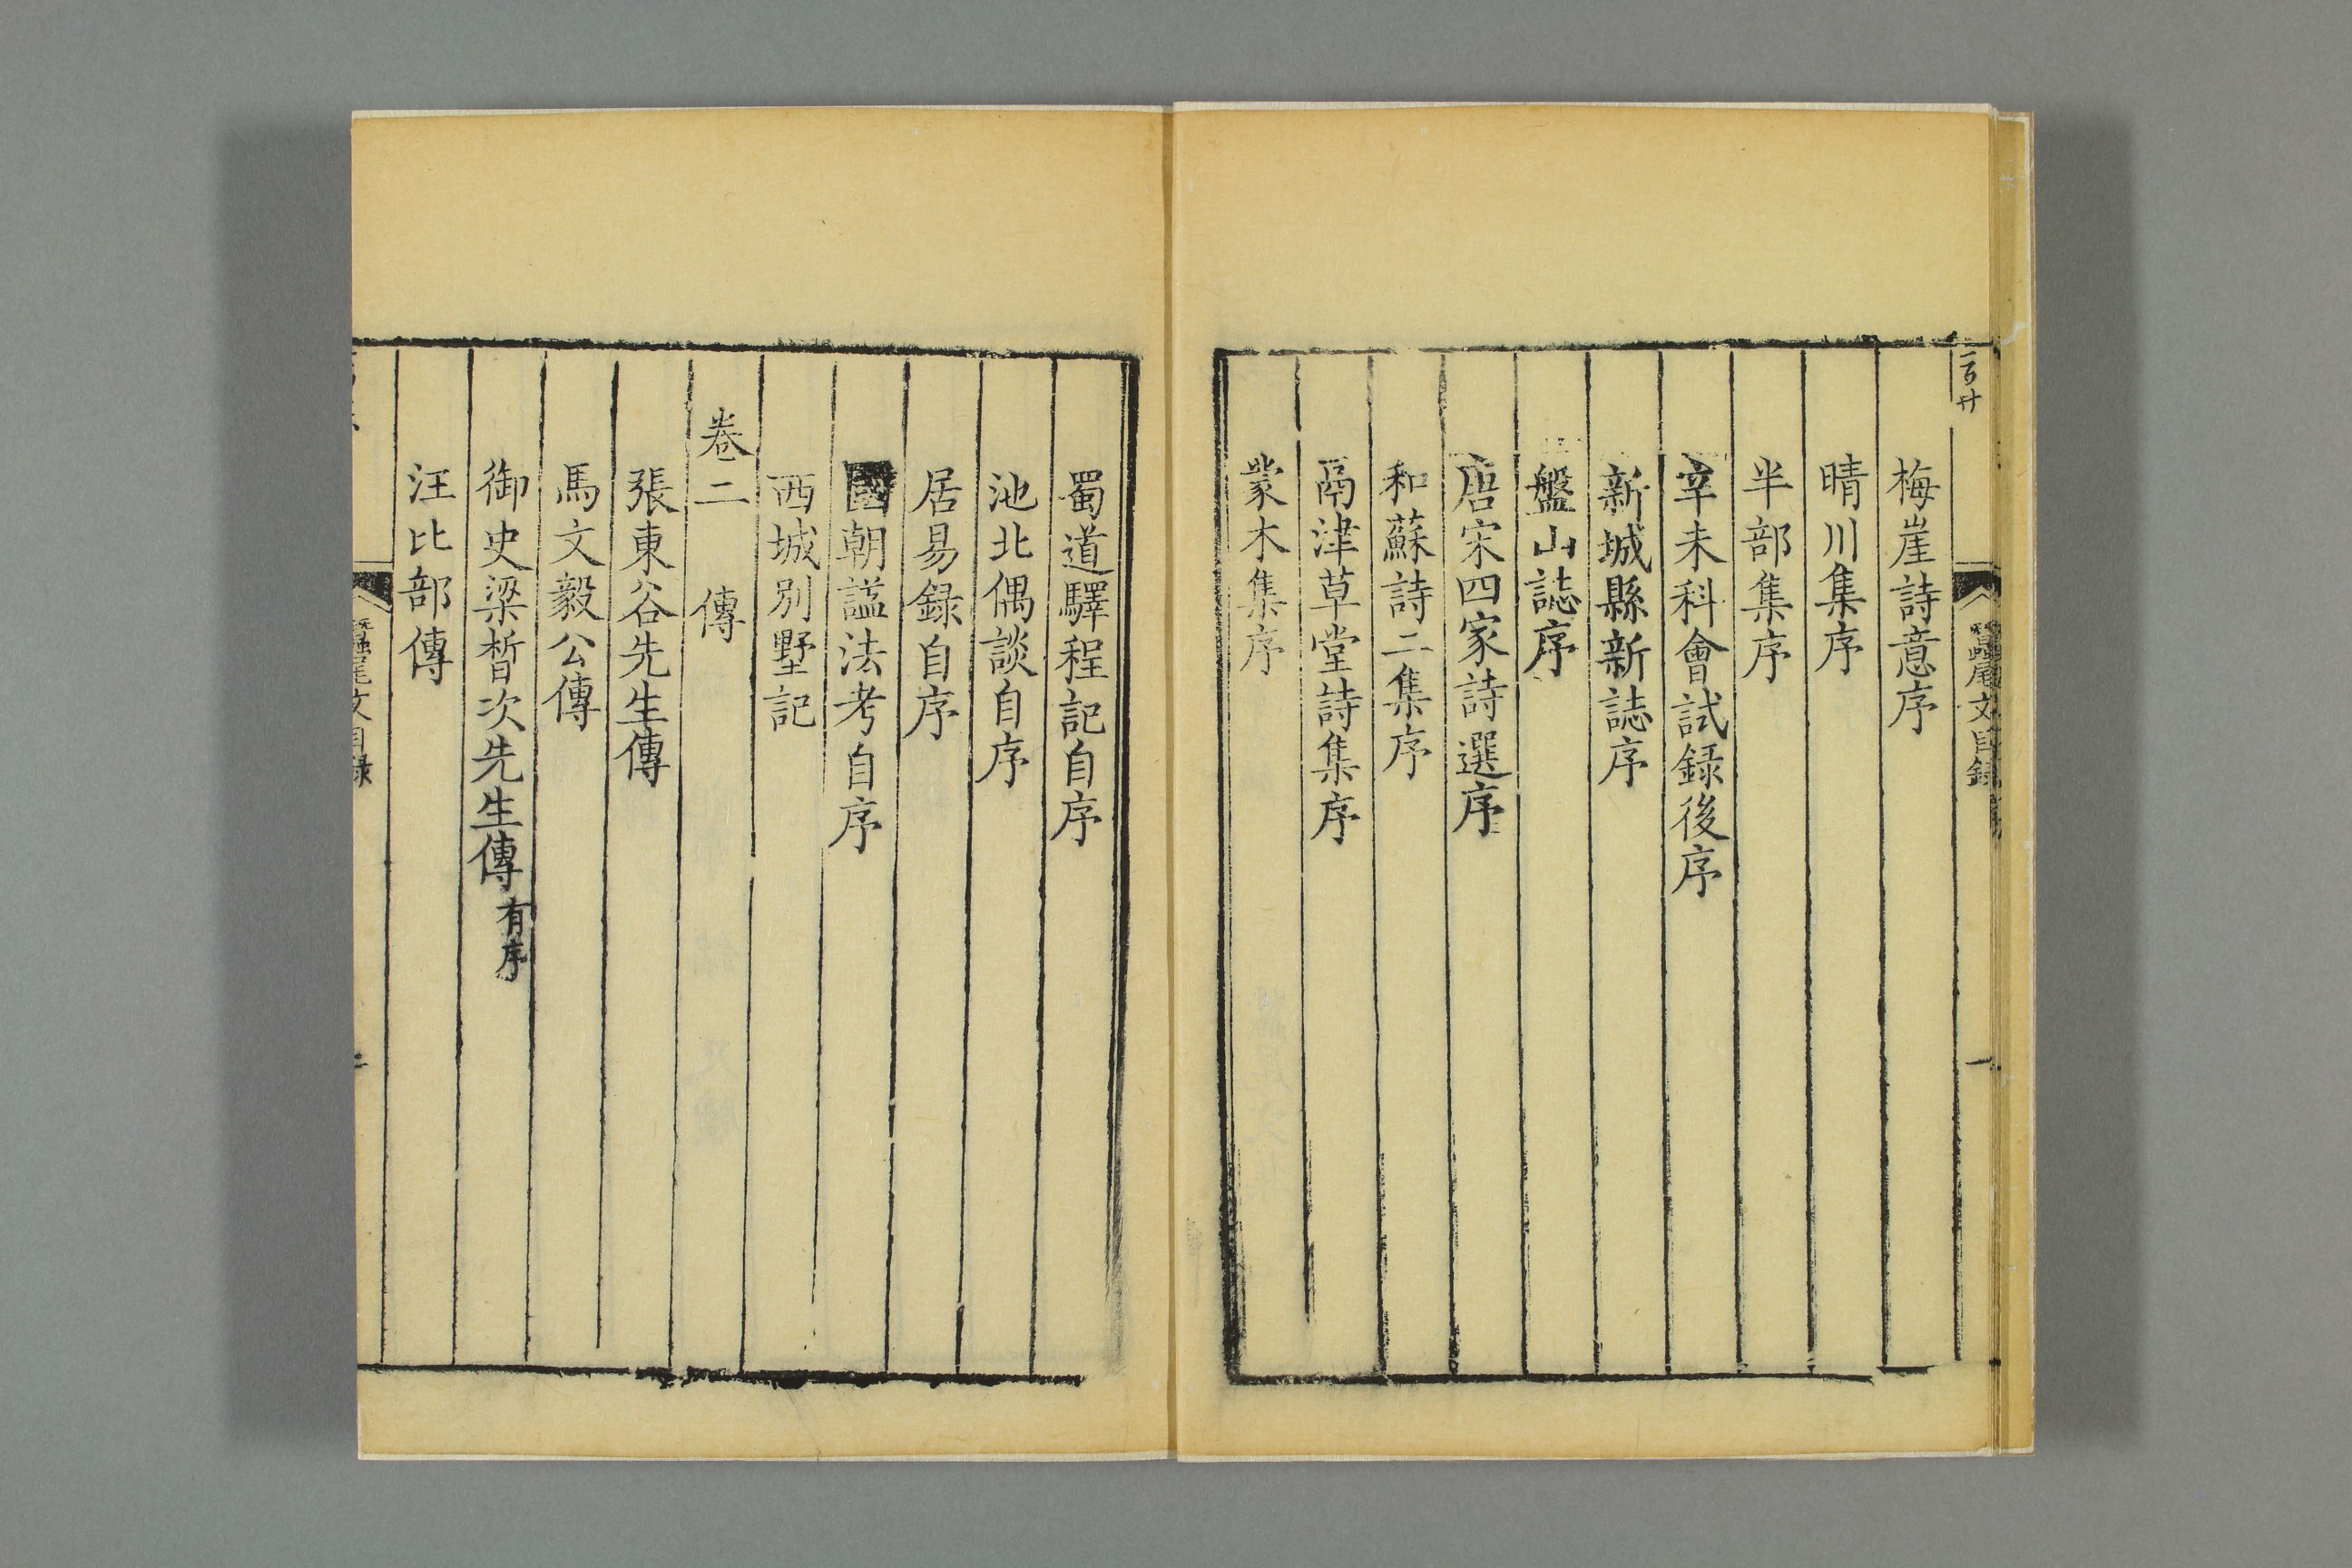 蠶尾文目錄
一
梅崖詩意序
晴川集序
半部集序
辛未科會試錄後序
新城縣新誌序
盤山誌序
唐宋四家詩選序
和蘇詩二集序
鬲津草堂詩集序
蒙木集序
蜀道驛程記自序
池北偶談自序
居易錄自序
國朝謚法考自序
西城別墅記
卷二 傳
張東谷先生傳
馬文毅公傳
御史梁晳次先生傳 有序
汪比部傳
蠶尾文目錄
二